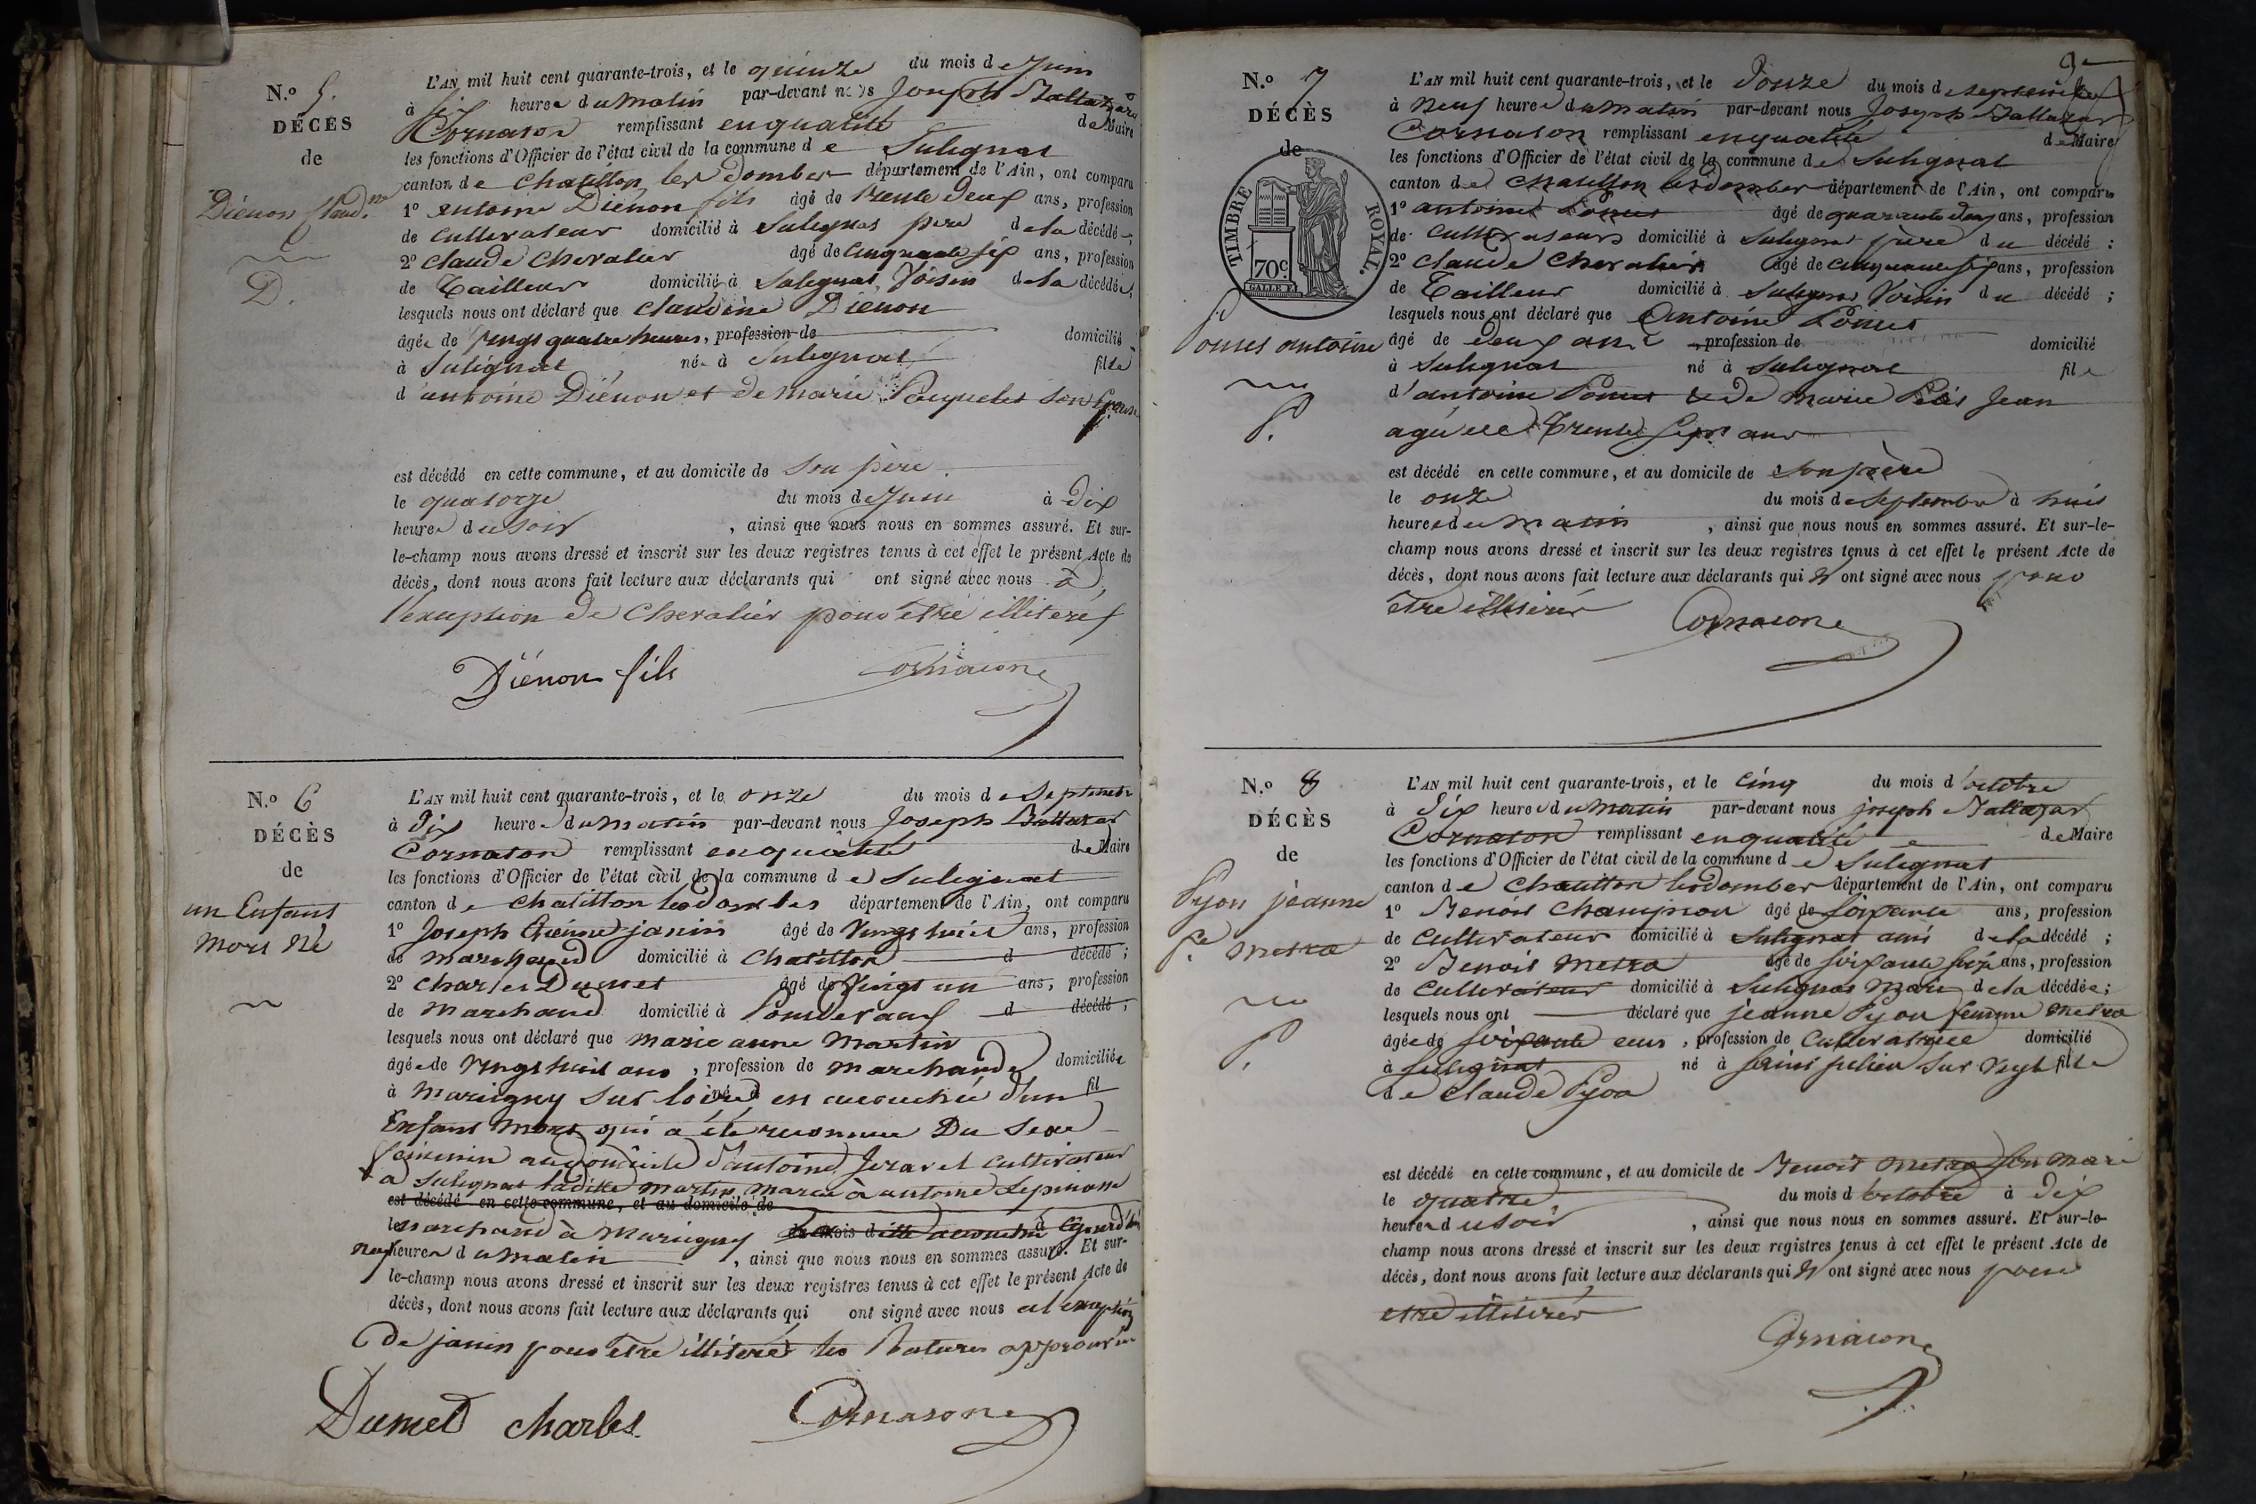 N.o 5.
DÉCÈS
de
Diénon Claud.ne
D.
L'AN mil huit cent quarante-trois, et le quinze du mois de Juin
à six heures du matin par-devant nous Joseph Baltazard
Cornaton remplissant en qualité de Maire
les fonctions d'Officier de l'état civil de la commune de Sulignat
canton de Chatillon les Dombes département de l'Ain, ont comparu
1o antoine Diénon fils âgé de trente deux ans, profession
de cultivateur domicilié à Sulignat père de la décédée,
2o Claude Chevalier âgé de cinquante six ans, profession
de Tailleur domicilié à Sulignat Voisin de la décédée,
lesquels nous ont déclaré que Claudine Diénon
âgée de vingt quatre heures, profession de domicilié
à Sulignat né à Sulignat fille
d'antoine Diénon et de marie Puquelet son Epouse
est décédé en cette commune, et au domicile de son père
le quatorze du mois de Juin à Dix
heures du soir, ainsi que nous nous en sommes assuré. Et sur-
le-champ nous avons dressé et inscrit sur les deux registres tenus à cet effet le présent Acte de
décès, dont nous avons fait lecture aux déclarants qui ont signé avec nous à
l'exception de Chevalier pour être illiteré
Diénon fils Cornaton
N.o 6
DÉCÈS
de
un Enfant
mort Né
L'AN mil huit cent quarante-trois, et le onze du mois de Septembre
à Dix heures du matin par-devant nous Joseph Baltazar
Cornaton remplissant en qualité de Maire
les fonctions d'Officier de l'état civil de la commune de Sulignat
canton de Chatillon les Dombes département de l'Ain, ont comparu
1o Joseph Etienne janin âgé de vingt huit ans, profession
de marchand domicilié à Chatillon d décédé;
2o Charles Dumet âgé de vingt un ans, profession
de marchand domicilié à Pontdevaux d décédé;
lesquels nous ont déclaré que marie anne Martin
âgée de vingt huit ans, profession de marchande domiciliée
à Marigny sur loire né à en accouchée d'un fil
Enfant mort qui a été reconnu Du Sexe
féminin au domicile d'antoine Jeravet cultivateur
a Sulignat ladite martin mariée à antoine Lepinasse
est décédé en cette commune, et au domicile de
le marchand à Marigny du mois d ille accouché à aujourd'hui
neuf heures du matin, ainsi que nous nous en sommes assuré. Et sur-
le-champ nous avons dressé et inscrit sur les deux registres tenus à cet effet le présent Acte de
décès, dont nous avons fait lecture aux déclarants qui ont signé avec nous a l'exception
de janin pour être illiteré les Ratures approuvées
Dumet Charles Cornaton
N.o 7
DÉCÈS
de
TIMBRE ROYAL.
70c
Ponet antoine
P.
L'AN mil huit cent quarante-trois, et le Douze du mois de septembre
à neuf heures du matin par-devant nous Joseph Baltazar
Cornaton remplissant en qualité de Maire
les fonctions d'Officier de l'état civil de la commune de Sulignat
canton de Chatillon les dombes département de l'Ain, ont comparu
1o antoine Ponet âgé de quarante deux ans, profession
de cultivateur domicilié à Sulignat père du décédé;
2o Claude Chevalier âgé de cinquante six ans, profession
de Tailleur domicilié à Sulignat Voisin du décédé;
lesquels nous ont déclaré que Antoine Ponet
âgé de Deux ans, profession de domicilié
à Sulignat né à Sulignat fils
d'antoine Ponet & de marie Petit Jean
agée de Trente sept ans
est décédé en cette commune, et au domicile de son père
le onze du mois de septembre à huit
heures du matin, ainsi que nous nous en sommes assuré. Et sur-le-
champ nous avons dressé et inscrit sur les deux registres tenus à cet effet le présent Acte de
décès, dont nous avons fait lecture aux déclarants qui n'ont signé avec nous pour
être illiterés Cornaton
N.o 8
DÉCÈS
de
Pyon jeanne
f.e metra
P.
L'AN mil huit cent quarante-trois, et le cinq du mois d'octobre
à Dix heures du matin par-devant nous joseph Baltazar
Cornaton remplissant en qualité de Maire
les fonctions d'Officier de l'état civil de la commune de Sulignat
canton de Chatillon les dombes département de l'Ain, ont comparu
1o Benoit Champion âgé de soixante ans, profession
de cultivateur domicilié à Sulignat ami de la décédé;
2o Benoit metra âgé de soixante seize ans, profession
de cultivateur domicilié à Sulignat Mari de la décédée;
lesquels nous ont déclaré que jeanne Pyon femme metra
âgée de soixante ans, profession de cultivatrice domicilié
à Sulignat né à saint julien sur veyle fille
de Claude Pyon
est décédé en cette commune, et au domicile de Benoit metra son mari
le quatre du mois d'octobre à Dix
heures du soir, ainsi que nous nous en sommes assuré. Et sur-le-
champ nous avons dressé et inscrit sur les deux registres tenus à cet effet le présent Acte de
décès, dont nous avons fait lecture aux déclarants qui n'ont signé avec nous pour
etre illiterés
Cornaton